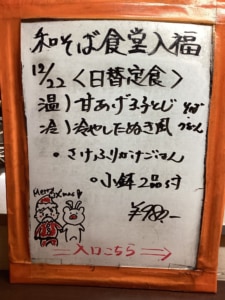 和そば食堂入福
12/22〈日替定食〉
温)甘あげ玉子とじ そば
冷)冷やしたぬき風 うどん
•さけふりかけごはん
•小鉢2品付
¥780.-
Merry Xmas
入口こちら